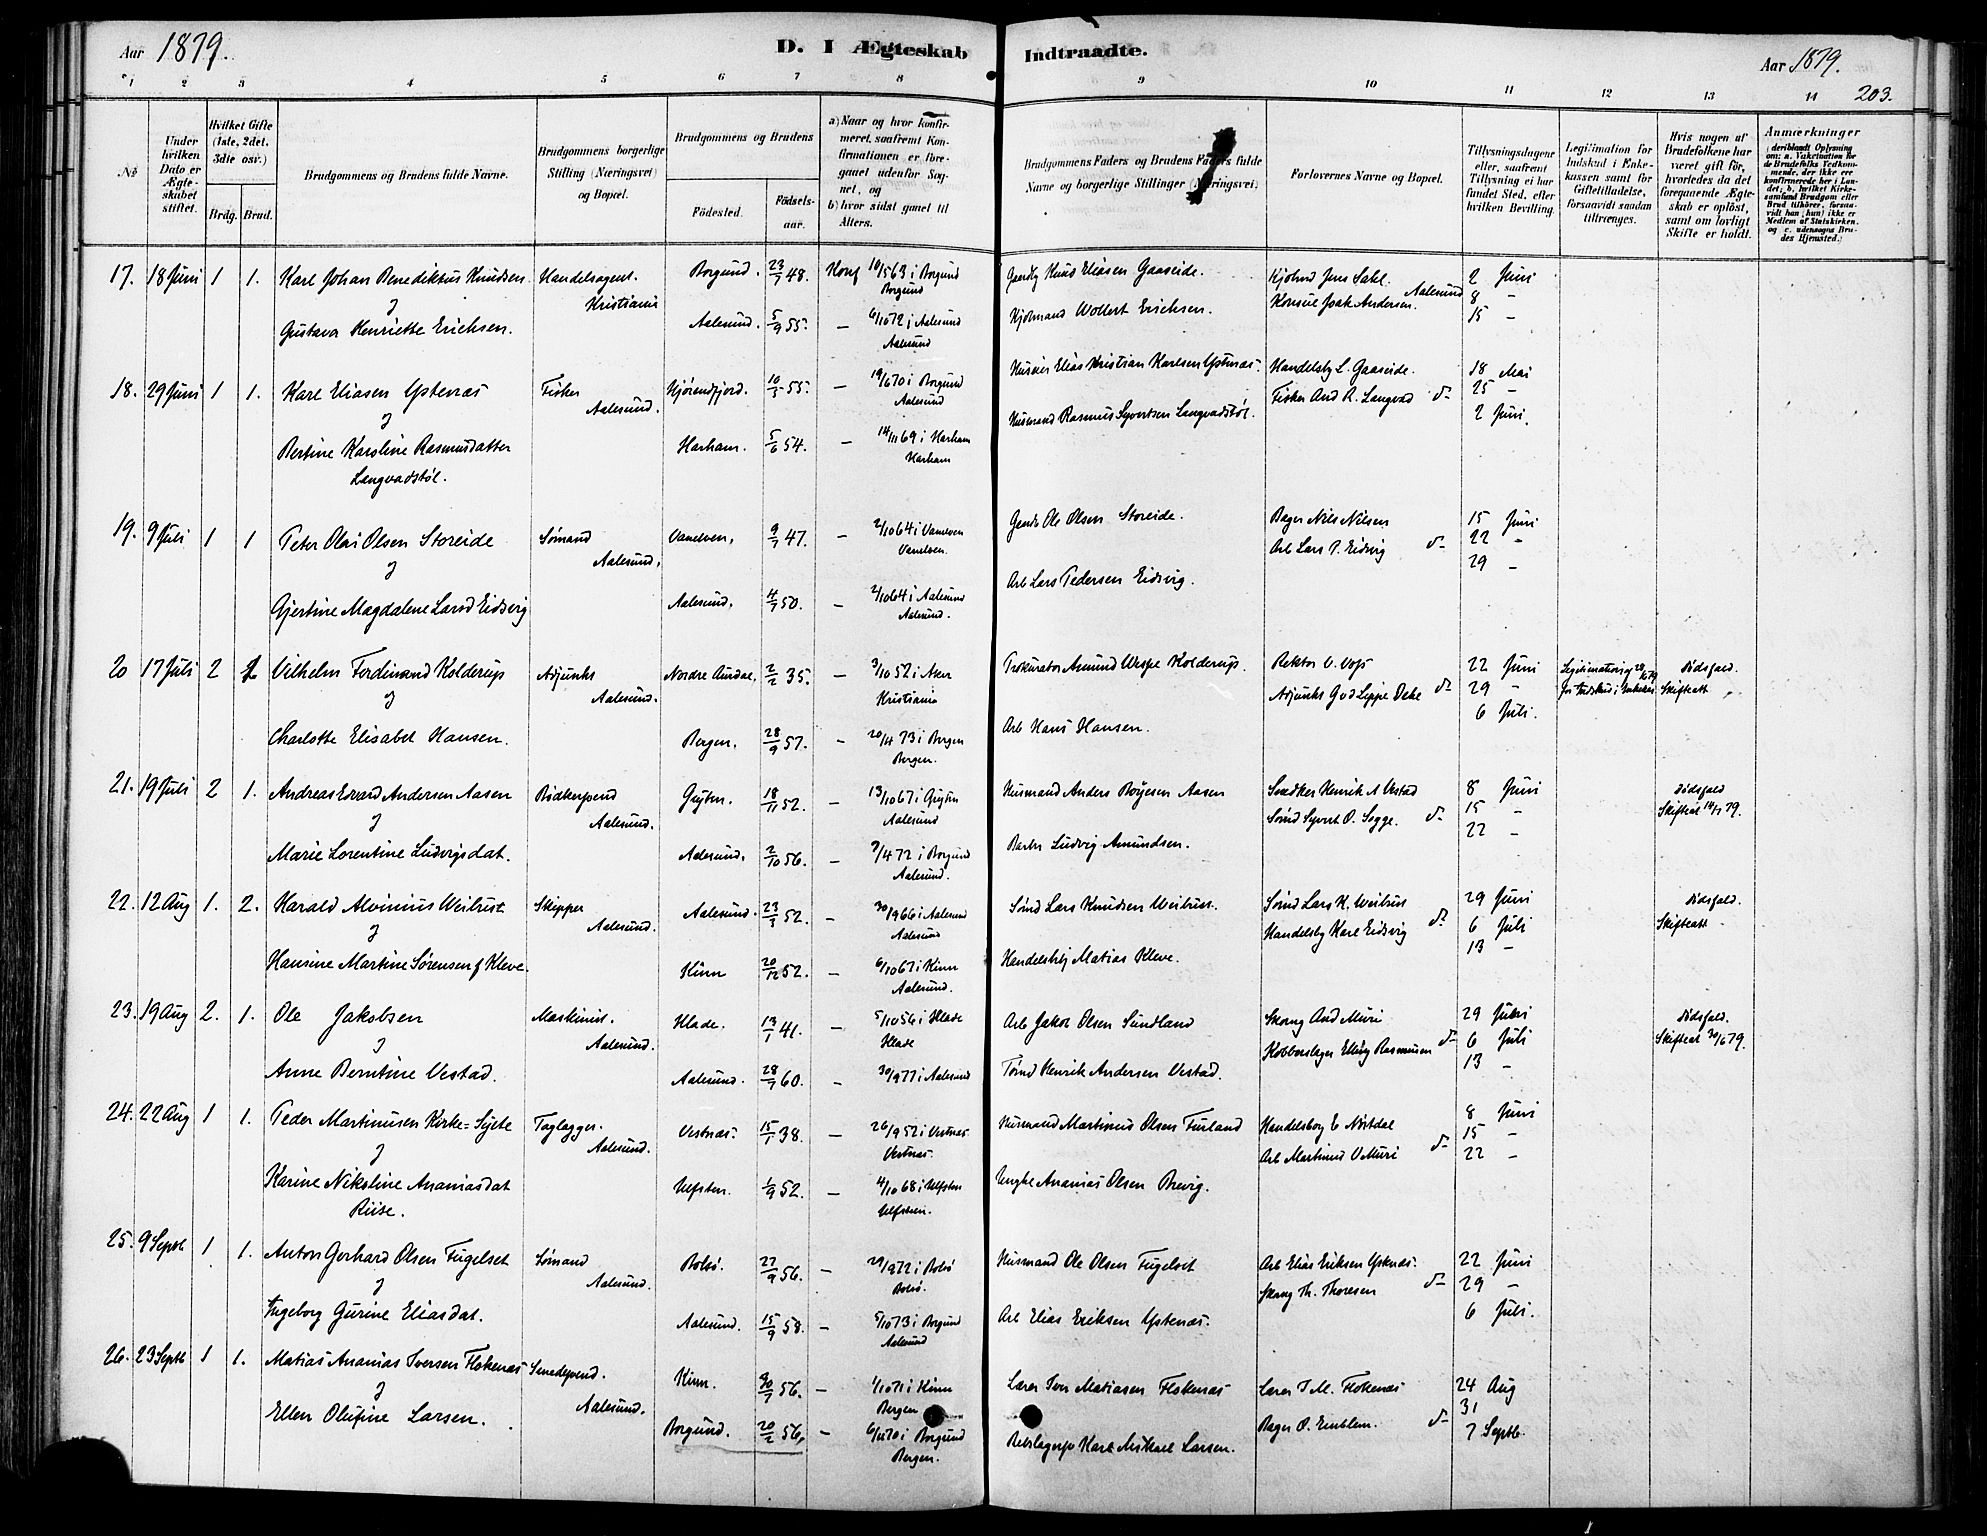 Aar 1879.
D. I Ægteskab Indtraadte.
Aar 1879.
203.
1 2 3 4 5 6 7 8 9 10 11 12 13 14
No
Under hvilken Dato er Ægteskabet stiftet.
Hvilket Gifte (1ste, 2det, 3die osv.)
Brdg. Brud.
Brudgommens og Brudens fulde Navne.
Brudgommens borgerlige Stilling (Næringsvei) og Bopæl.
Brudgommens og Brudens
Födested.
Födselsaar.
a) Naar og hvor konfirmeret, saafremt Konfirmationen er foregaaet udenfor Sognet, og
b) hvor sidst gaaet til Alters.
Brudgommens Faders og Brudens Faders fulde Navne og borgerlige Stillinger (Næringsvei)
Forlovernes Navne og Bopæl.
Tillysningsdagene eller, saafremt Tillysning ei har fundet Sted, efter hvilken Bevilling.
Legitimation for Indskud i Enkekassen samt for Giftetilladelse, forsaavidt saadan tiltrænges.
Hvis nogen af Brudefolkene har været gift för, hvorledes da det foregaaende Ægteskab er oplöst, samt om lovligt Skifte er holdt.
Anmærkninger (deriblandt Oplysning om: a. Vakcination for de Brudefolks Vedkommende, der ikke ere konfirmerede her i Landet; b. hvilket Kirkesamfund Brudgom eller Brud tilhörer, forsaavidt han (hun) ikke er Medlem af Statskirken, og c. udensogns Brudes Hjemsted.)
17. 18 Juni 1 1. Karl Johan Benediktus Knudsen Handelsagent. Borgund. 23/7 48. Konf 10/5 63 i Borgund Gaardbr Knud Eliasen Gaaseide. Kjöbmd Jens Dahl. 2 Juni
& Kristiania Borgund Konsul Joak Andersen Aalesund 8 -
Gustava Henriette Erichsen. Aalesund. 5/9 55. - 6/10 72 i Aalesund Kjöbmand Wollert Erichsen. 15 -
Aalesund
18. 29 Juni 1 1. Karl Eliasen Ystenæs Fisker Hjörendfjord. 10/5 55. - 19/6 70 i Borgund Husmd Elias Kristian Karlsen Ystenæs. Handelsby L. Gaaseide. 18 Mai
& Aalesund. Aalesund Fisker And R. Langvad do 25 -
Bertine Karoline Rasmusdatter Harham. 5/6 54. - 14/11 69 i Harham Husmand Rasmus Syvertsen Langvadstöl. 2 Juni.
Langvadstöl. Harham
19. 9 Juli 1 1 Peter Olai Olsen Storeide Sömand Vanelven. 9/7 47. - 2/10 64 i Vanelven Gaardb Ole Olsen Storeide. Bager Nils Nilsen 15 Juni
& Aalesund. Vanelven. Arb Lars P. Eidsvig do 22 -
Gjertine Magdalene Larsd Eidsvig Aalesund. 4/7 50. - 2/10 64 i Aalesund Arb Lars Pedersen Eidsvig. 29 -
Aalesund.
20 17 Juli 2 1 Vilhelm Ferdinand Kolderup Adjunkt Nordre Aurdal. 2/2 35. - 3/10 52 i Asker Prokurator Amund Wespe Kolderup. Rektor V. Voss 22 Juni Dödsfald.
& Aalesund. Kristiania Adjunkt G v d Lippe Deke do 29 - Skifteatt
Charlotte Elisabet Hansen. Bergen. 28/9 57. - 20/4 73 i Bergen Arb Hans Hansen. 6 Juli.
Bergen.
21. 19 Juli 2 1. Andreas Edvard Andersen Aasen Bödkersvend Grytten. 18/11 52. - 13/10 67 i Grytten Husmand Anders Böyesen Aasen Snedker Henrik A Vestad 8 Juni Dödsfald
& Aalesund. Aalesund Sömd Syvert O. Segge. do 15 - Skifteatt 14/7 79.
Marie Lorentine Ludvigsdat. Aalesund. 2/10 56. - 7/4 72 i Borgund Barber Ludvig Amundsen. 22 -
Aalesund.
22. 12 Aug 1. 2. Harald Alvinius Weibust Skipper Aalesund. 23/3 52. - 30/9 66 i Aalesund Sömd Lars Knudsen Weibust. Sömd Lars K. Weibust 29 Juni Dödsfald.
& Aalesund. Aalesund Handelsby Karl Eidsvig do 6 Juli Skifteatt
Hansine Martine Sörensen f Kleve. Kinn 20/12 52. - 6/10 67 i Kinn Handelsby Matias Kleve. 13 -
Aalesund.
23. 19 Aug 2. 1. Ole Jakobsen Maskinist. Hlade. 13/1 41. - 5/10 56 i Hlade Arb Jakob Olsen Sundland Skomg And Muri 29 Juni Dödsfald.
& Aalesund. Hlade Kobberslager Elling Rasmusen do 6 Juli Skifteatt 30/6 79.
Anne Berntine Vestad. Aalesund. 28/7 60. - 30/9 77 i Aalesund Tömd Henrik Andersen Vestad. 13 -
24. 22 Aug 1 1. Peder Martinusen Kirke=Syete Taglægger. Vestnæs. 15/1 38. - 26/9 52 i Vestnæs Husmand Martinus Olsen Furland Handelsborg E Nörtdal 8 Juni
& Aalesund. Vestnæs. Arb Martinus O Muri do 15 -
Karine Nikoline Ananiasdat Ulfsten. 1/9 52. - 4/10 68 i Ulfsten Ananias Olsen Brevig. 22 -
Riise. Ulfsten.
25. 9 Septb 1 1. Anton Gerhard Olsen Fugelset Sömand Bolsö. 27/9 56. - 29/9 72 i Bolsö Husmand Ole Olsen Fugelset Arb Elias Eriksen Ystenæs. 22 Juni
& Aalesund. Bolsö. Skomg Th. Thoresen do 29 -
Ingeborg Gurine Eliasdat. Aalesund. 15/9 58. - 5/10 73 i Borgund Arb Elias Eriksen Ystenæs. 6 Juli.
Aalesund
26. 23 Septb 1 1. Matias Ananias Iversen Flokenæs Smedsvend. Kinn. 30/7 56. - 1/10 71 i Kinn Lærer Iver Matiasen Flokenæs Lærer I M. Flokenæs 24 Aug
& Aalesund. Bergen Bager O. Emblem. do 31
Ellen Olufine Larsen. Borgund. 20/2 56. - i Borgund Rebslagersv Karl Mikael Larsen. 7 Septb.
Bergen.